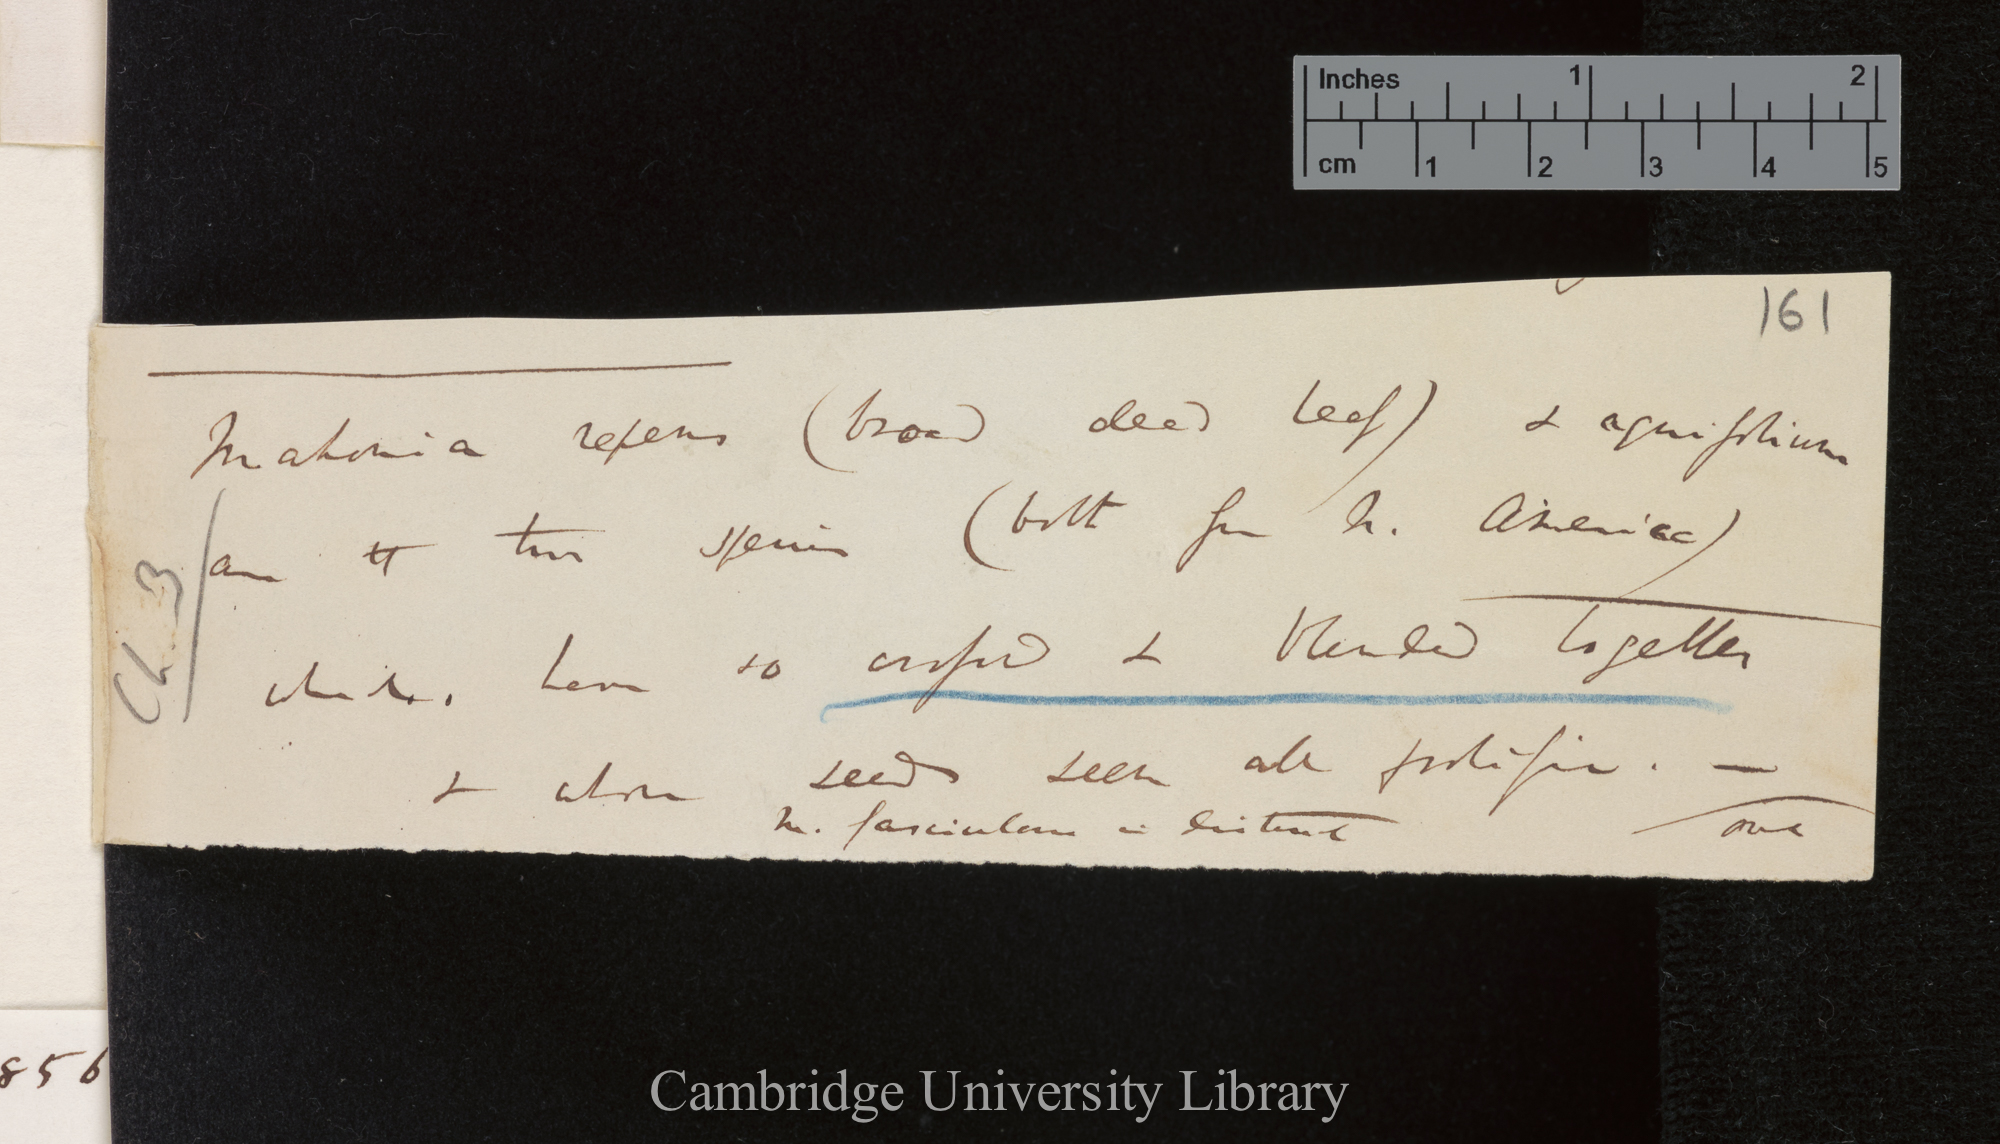 Inches 1 2
cm 1 2 3 4 5
161
Mahonia repens (broad dead leaf) & aquifolium
are the two species (both from N. America)
which, have so crossed & blended together
& whose seeds seem all prolific. —
M. fascicularis is distinct
over
Ch. 3
856
Cambridge University Library